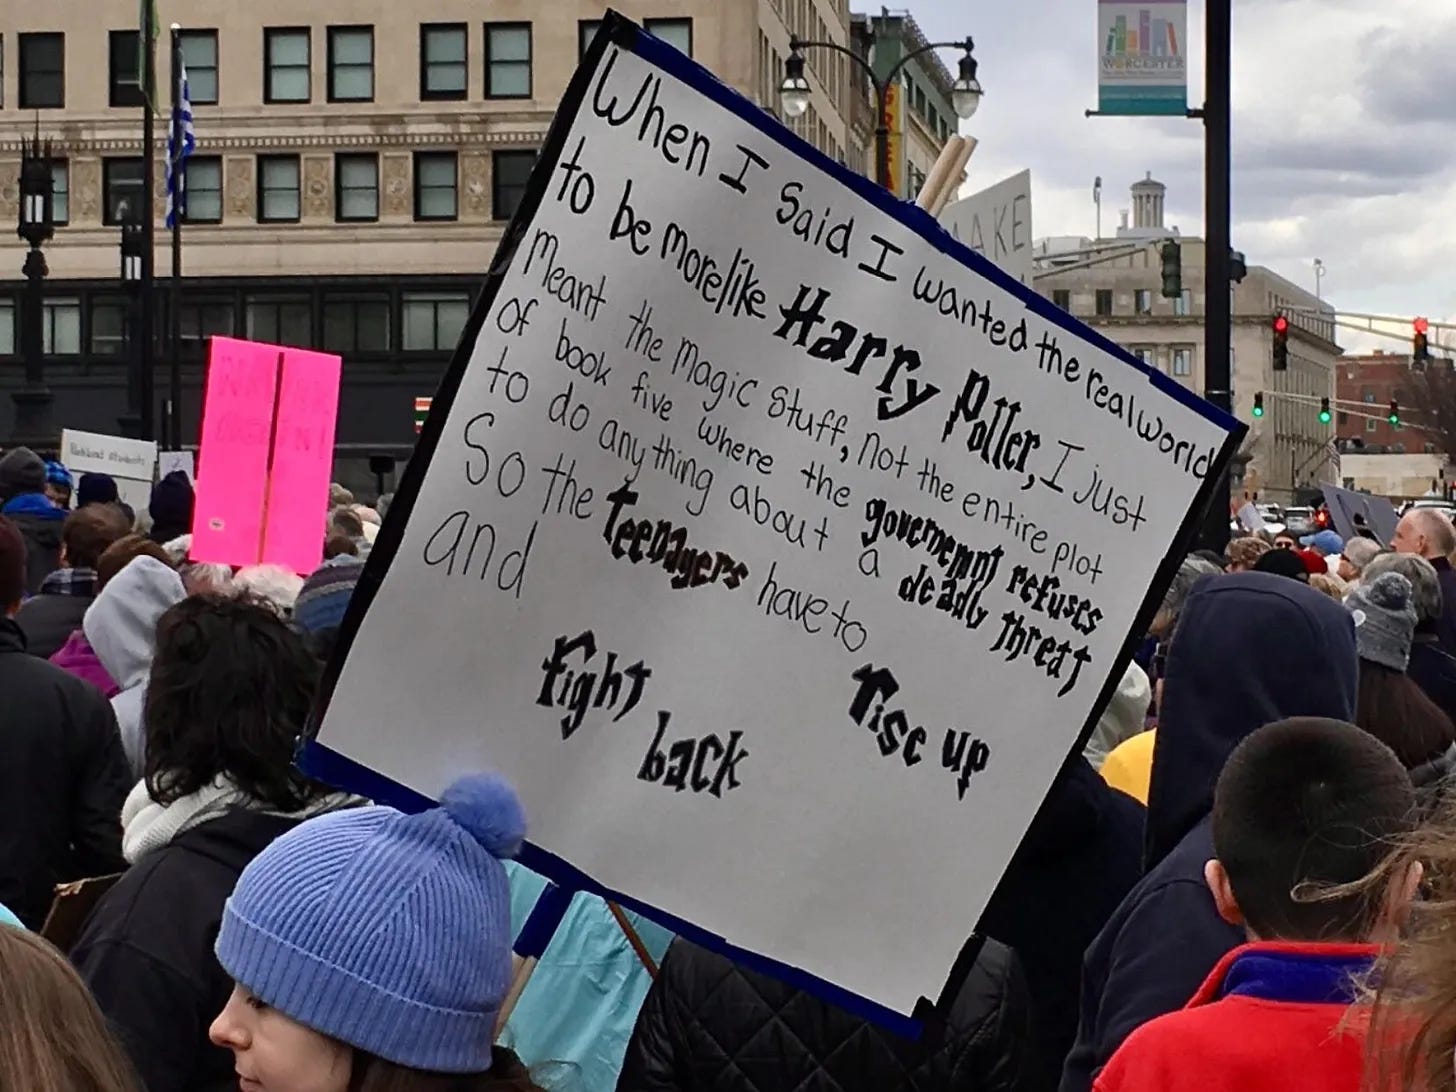 When I Said I wanted the real world
to be more like Harry Potter, I just
Meant the Magic Stuff, not the entire plot
of book five where the governemnt refuses
to do anything about a deadly threat
So the teenagers have to rise up
and fight back
MAKE
WORCESTER